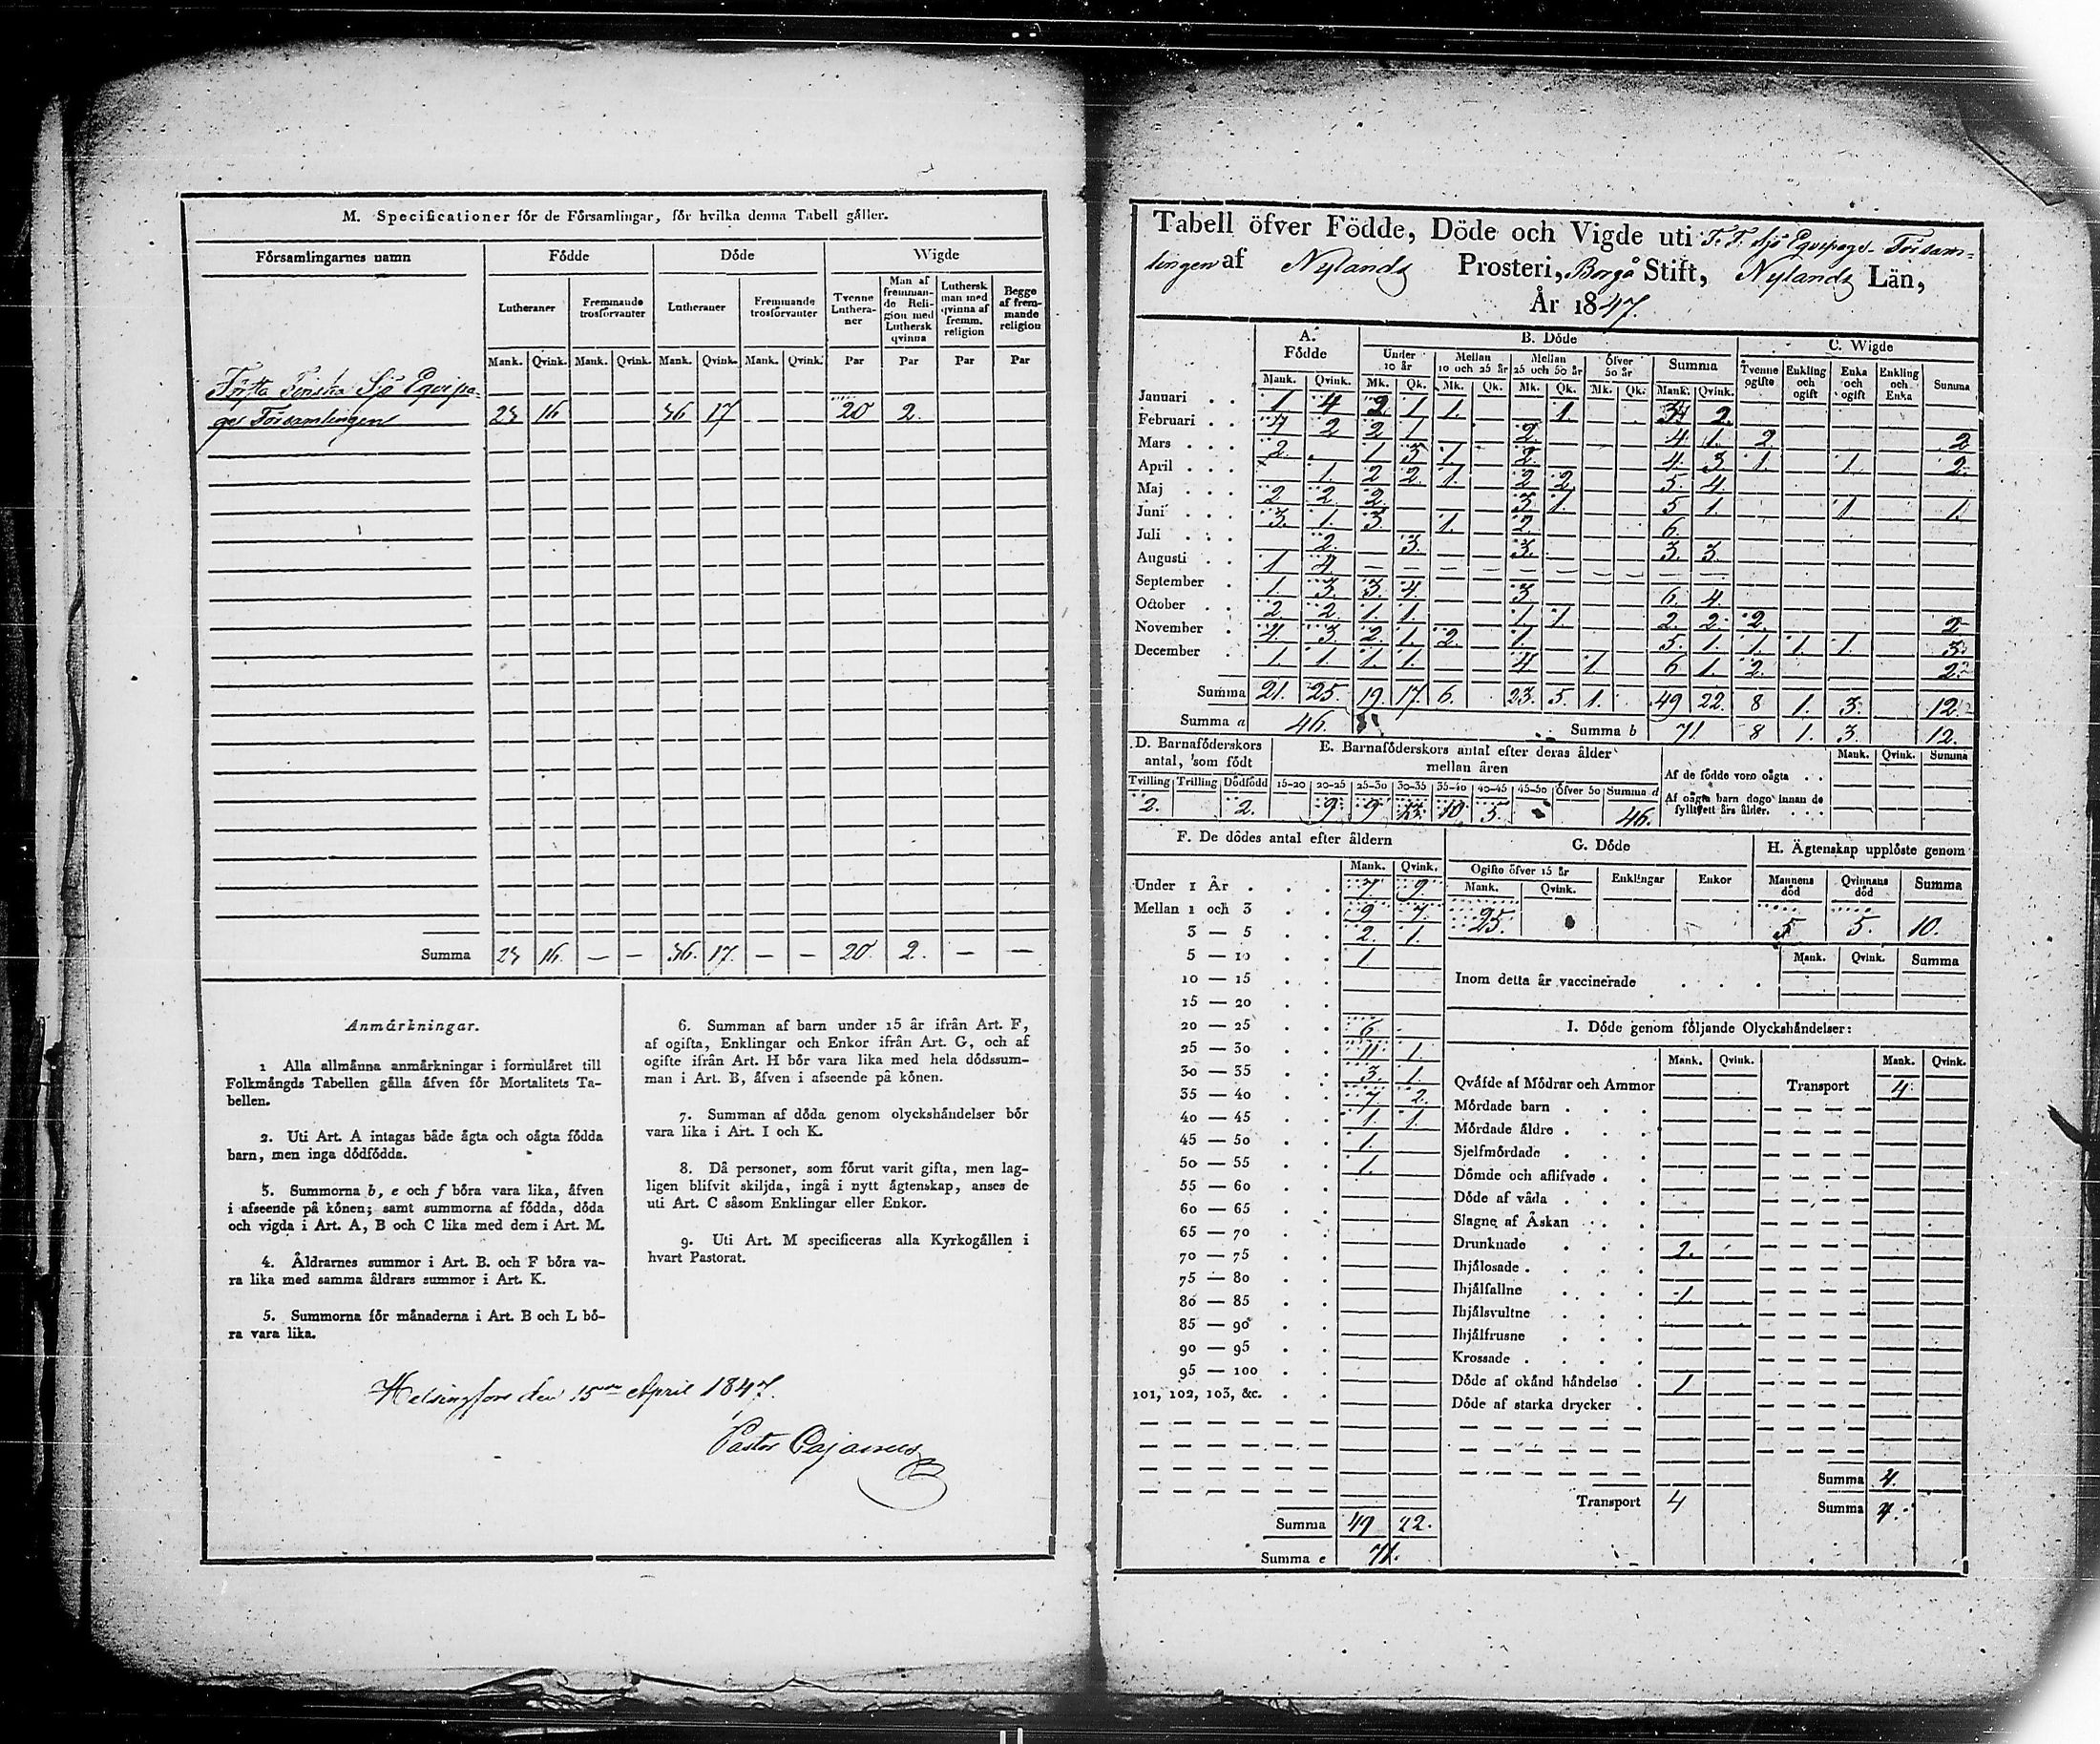 M. Specificationer för de Församlingar, för hvilka denna Tabell gäller.
Församlingarnes namn Födde Döde Wigde
Lutheraner Fremmande trosförvanter Lutheraner Fremmande trosförvanter Tvenne Lutheraner Man af fremmande Religion med Luthersk qvinna Luthersk man med qvinna af fremm. religion Begge af fremmande religion
Mank. Qvink. Mank. Qvink. Mank. Qvink. Mank. Qvink. Par Par Par Par
Första Finska Sjö Eqvipa-
ges Församlingen 23 16 36 17 20 2.
Summa 23 16. — — 36. 17. — — 20. 2. — —
Anmärkningar.
1 Alla allmänna anmärkningar i formuläret till
Folkmängds Tabellen gälla äfven för Mortalitets Ta-
bellen.
2. Uti Art. A intagas både ägta och oägta födda
barn, men inga dödfödda.
3. Summorna b, e och f böra vara lika, äfven
i afseende på könen; samt summorna af födda, döda
och vigda i Art. A, B och C lika med dem i Art. M.
4. Åldrarnes summor i Art. B. och F böra va-
ra lika med samma åldrars summor i Art. K.
5. Summorna för månaderna i Art. B och L bö-
ra vara lika.
6. Summan af barn under 15 år ifrån Art. F,
af ogifta, Enklingar och Enkor ifrån Art. G, och af
ogifte ifrån Art. H bör vara lika med hela dödssum-
man i Art. B, äfven i afseende på könen.
7. Summan af döda genom olyckshändelser bör
vara lika i Art. I och K.
8. Då personer, som förut varit gifta, men lag-
ligen blifvit skiljda, ingå i nytt ägtenskap, anses de
uti Art. C såsom Enklingar eller Enkor.
9. Uti Art. M specificeras alla Kyrkogällen i
hvart Pastorat.
Helsingfors den 15de April 1847.
Pastor Cajanus
Tabell öfver Födde, Döde och Vigde uti F. F. Sjö Eqvipage Församlingen
af Nylands Prosteri, Borgå Stift, Nylands Län,
År 1847.
A. Födde B. Döde C. Wigde
Under 10 år Mellan 10 och 25 år Mellan 25 och 50 år Öfver 50 år Summa Tvenne ogifte Enkling och ogift Enka och ogift Enkling och Enka Summa
Mank. Qvink. Mk. Qk. Mk. Qk. Mk. Qk. Mk. Qk. Mank. Qvink.
Januari 1 4 2 1 1. 1. 3 2.
Februari 4 2 2 1 2. 4 1. 2. 2
Mars 2. 1 3 1. 2. 4. 3. 1. 1. 2.
April 1. 2 2. 1. 2 2 5. 4.
Maj 2 2 2. 3. 1. 5 1. 1 1.
Juni 3. 1. 3. 1. 2. 6.
Juli 2. 3. 3. 3. 3.
Augusti 1 4. — — — — — — — — — —
September 1. 3. 3. 4. 3 6. 4.
October 2 2. 1. 1. 1 1 2. 2. 2. 2
November 4. 3. 2. 1. 2. 1. 5. 1. 1. 1 1. 3.
December 1. 1. 1. 1. 4 1. 6 1. 2. 2.
Summa 21. 25. 19. 17. 6. 23. 5. 1. 49 22. 8 1. 3. 12.
Summa a 46. Summa b 71 8 1. 3. 12.
D. Barnaföderskors antal, som födt
Tvilling Trilling Dödfödd
2. 2.
E. Barnaföderskors antal efter deras ålder mellan åren
15-20 20-25 25-30 30-35 35-40 40-45 45-50 öfver 50 Summa d
9 9 13. 10 5. 46.
Mank. Qvink. Summa
Af de födde voro oägta
Af oägta barn dogo innan de
fylltett års ålder.
F. De dödes antal efter åldern
Mank. Qvink.
Under 1 År 7 9.
Mellan 1 och 3 9 7.
3 — 5 2. 1.
5 — 10 1
10 — 15
15 — 20
20 — 25 6
25 — 30 11. 1.
30 — 35 3. 1.
35 — 40 7. 2.
40 — 45 1. 1.
45 — 50 1.
50 — 55 1.
55 — 60
60 — 65
65 — 70
70 — 75
75 — 80
80 — 85
85 — 90
90 — 95
95 — 100
101, 102, 103, &c.
Summa 49 22.
Summa e 71.
G. Döde
Ogifte öfver 15 år Enklingar Enkor
Mank. Qvink.
25.
H. Ägtenskap upplöste genom
Mannens död Qvinnans död Summa
5 5. 10.
Mank. Qvink. Summa
Inom detta år vaccinerade
I. Döde genom följande Olyckshändelser:
Mank. Qvink. Mank. Qvink.
Qväfde af Mödrar och Ammor Transport 4
Mördade barn
Mördade äldre
Sjelfmördade
Dömde och aflifvade
Döde af våda
Slagne af Åskan
Drunknade 2.
Ihjälosade
Ihjälfallne 1.
Ihjälsvultne
Ihjälfrusne
Krossade
Döde af okänd händelse 1
Döde af starka drycker
Summa 4.
Transport 4 Summa 4.